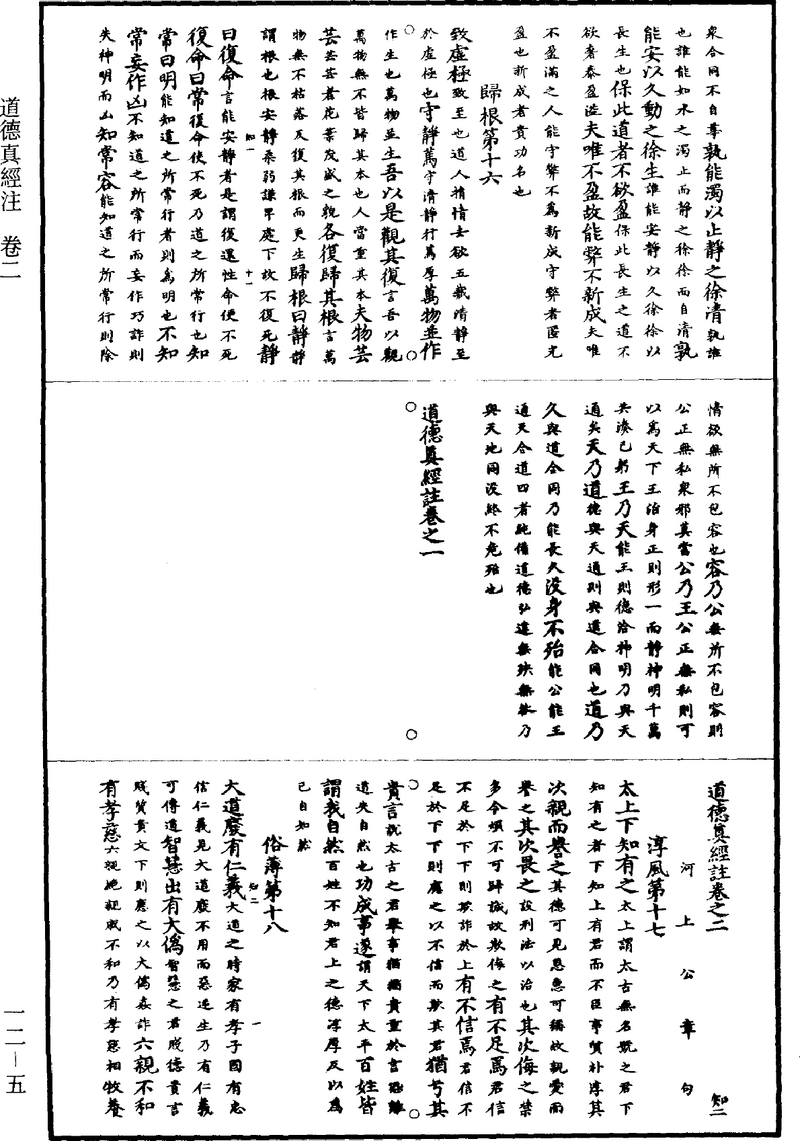 泉合同不自專孰能濁以止靜之徐清孰誰
也誰能如水之濁止而靜之徐徐而自清孰
能安以久動之徐生誰能安靜以久徐徐以
長生也保此道者不欲盈保此長生之道不
欲奢泰盈溢夫唯不盈故能弊不新成夫唯
不盈滿之人能守弊不為新成守弊者匿光
盈也新成者貴功名也
歸根第十六
致虛極致至也道人損情去欲五藏清靜至
於虛極也守靜篤守清靜行篤厚萬物並作
作生也萬物並生吾以是觀其復言吾以觀
萬物無不皆歸其本也人當重其本夫物芸
芸芸芸者花葉茂盛之貌各復歸其根言萬
物無不枯落反復其根而更生歸根曰靜靜
謂根也根安靜柔弱謙卑處下故不復死靜
知一
十一
曰復命言能安靜者是謂復還性命使不死
復命曰常復命使不死乃道之所常行也知
常曰明能知道之所常行者則為明也不知
常妄作凶不知道之所常行而妄作巧詐則
失神明而凶知常容能知道之所常行則除
情欲無所不包容也容乃公無所不包容則
公正無私眾邪莫當公乃王公正無私則可
以為天下王治身正則形一而靜神明千萬
共湊己躬王乃天能王則德洽神明乃與天
通矣天乃道德與天通則與道合同也道乃
久與道合同乃能長久沒身不殆能公能王
通天合道四者純備道德弘遠無殃無咎乃
與天地同沒終不危殆也
道德真經註卷之一
道德真經註卷之二
知二
河上公章句
淳風第十七
太上下知有之太上謂太古無名號之君下
知有之者下知上有君而不臣事質朴淳其
次親而譽之其德可見恩惠可稱故親愛而
譽之其次畏之設刑法以治也其次侮之禁
多令煩不可歸誠故欺侮之有不足焉君信
不足於下下則欺詐於上有不信焉君信不
足於下下則應之以不信而欺其君猶兮其
貴言說太古之君舉事猶猶貴重於言恐離
道失自然也功成事遂謂天下太平百姓皆
謂我自然百姓不知君上之德淳厚反以為
己自知然
俗薄第十八
知二
一
大道廢有仁義大道之時家有孝子國有忠
信仁義見大道廢不用而惡逆生乃有仁義
可傳道智慧出有大偽智慧之君賤德貴言
賤質貴文下則應之以大偽姦詐六親不和
有孝慈六親絕親戚不和乃有孝慈相牧養
道德真經注 卷二
一二－五